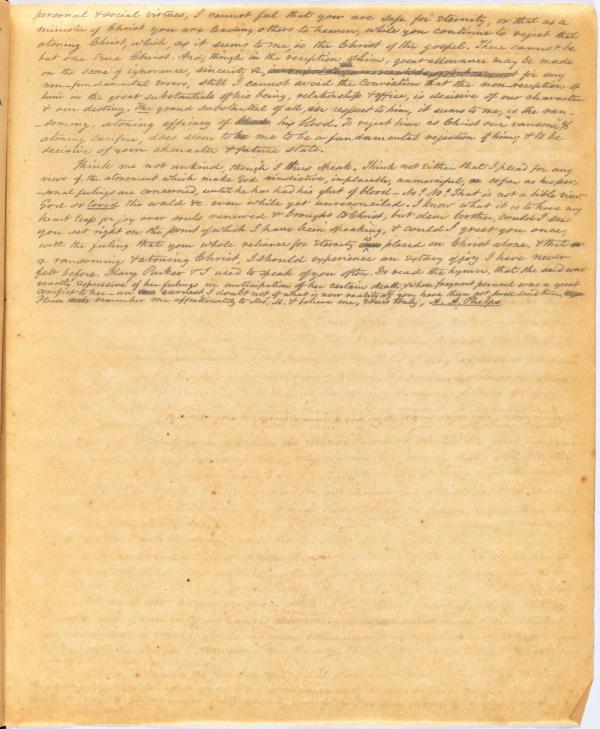 personal & social virtues, I cannot feel that you are safe for eternity, or that as a
minister of Christ you are leading others to heaven, while you continue to reject that
atoning Christ, which, as it seems to me, is the Christ of the gospel. There cannot be
but one true Christ. And, though in the reception of him, great allowance may be made
on the score of ignorance, sincerity &c, for any
non-fundamental errors, still I cannot avoid the conviction that the non-reception of
him in the great substantials of his being, relationships & offices, is decisive of our character
& our destiny. The grand substantial of all, in respect to him, it seems to me, is the ran-
-soming, atoning efficacy of his blood. To reject him as Christ our ransom, &
atoning sacrifice, does seem to me to be a fundamental rejection of him; & to be
decisive of your character & future state.
Think me not unkind, though I thus speak. Think not either that I plead for any
views of the atonement which make God vindictive, implacable, unmerciful, so far as his per-
-sonal feelings are concerned, until he has had his glut of blood - No! No! That is not a bible view
God so loved the world &c. even while yet unreconciled. I know what it is to have my
heart leap for joy over souls renewed & brought to Christ, but dear brother, could I see
you set right on the point of which I have been speaking, & could I greet you once,
with the feeling that your whole reliance for eternity is placed on Christ alone, & that
a ransoming & atoning Christ, I should experience an extacy of joy I have never
felt before. Mary Parker & I used to speak of you often. Do read the hymn, that she said was
exactly expressive of her feelings in anticipation of her certain death, & whose frequent perusal was a great
comfort to her - an earnest I doubt not of what is now reality. If you have them not I will send them,
Please remember me affectionately to Mrs. M. & believe me, Yours truly, A. A. Phelps.